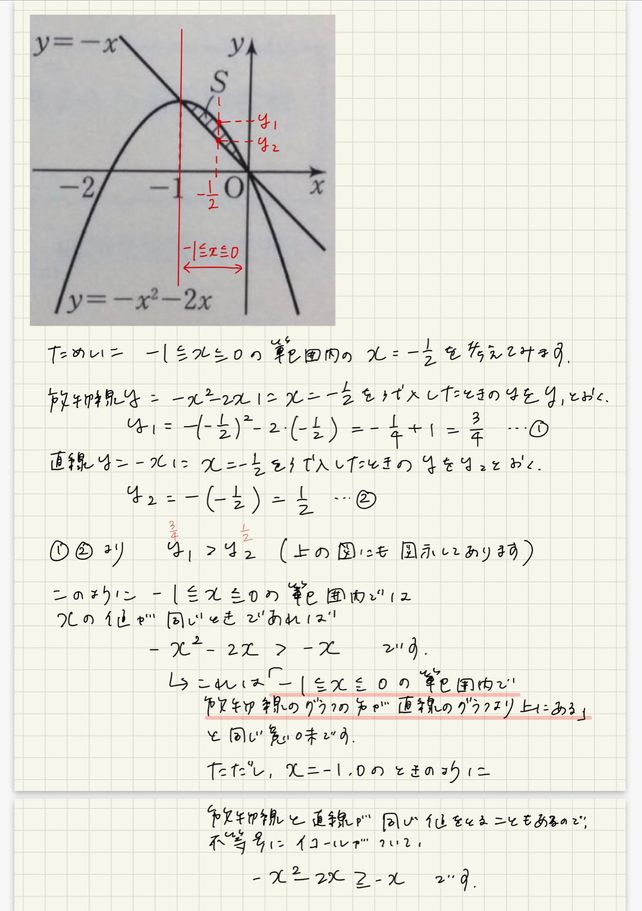 y=-x
y
S
y₁
y₂
-2
-1
-1/2
O
x
-1≦x≦0
y=-x²-2x
ためしに -1≦x≦0の範囲内の x=-1/2を考えてみます.
放物線y=-x²-2xに x=-1/2を代入したときのyをy₁とおく.
y₁=-(-1/2)²-2・(-1/2)=-1/4+1=3/4 …①
直線y=-xに x=-1/2を代入したときのyをy₂とおく.
y₂=-(-1/2)=1/2 …②
3/4 1/2
①②より y₁>y₂ (上の図にも図示してあります)
このように -1≦x≦0の範囲内では
xの値が同じときであれば
-x²-2x>-x です.
↳これは「-1≦x≦0の範囲内で
放物線のグラフの方が直線のグラフより上にある」
と同じ意味です.
ただし, x=-1,0のときのように
放物線と直線が同じ値をとることもあるので,
不等号にイコールがついて,
-x²-2x≧-x です.